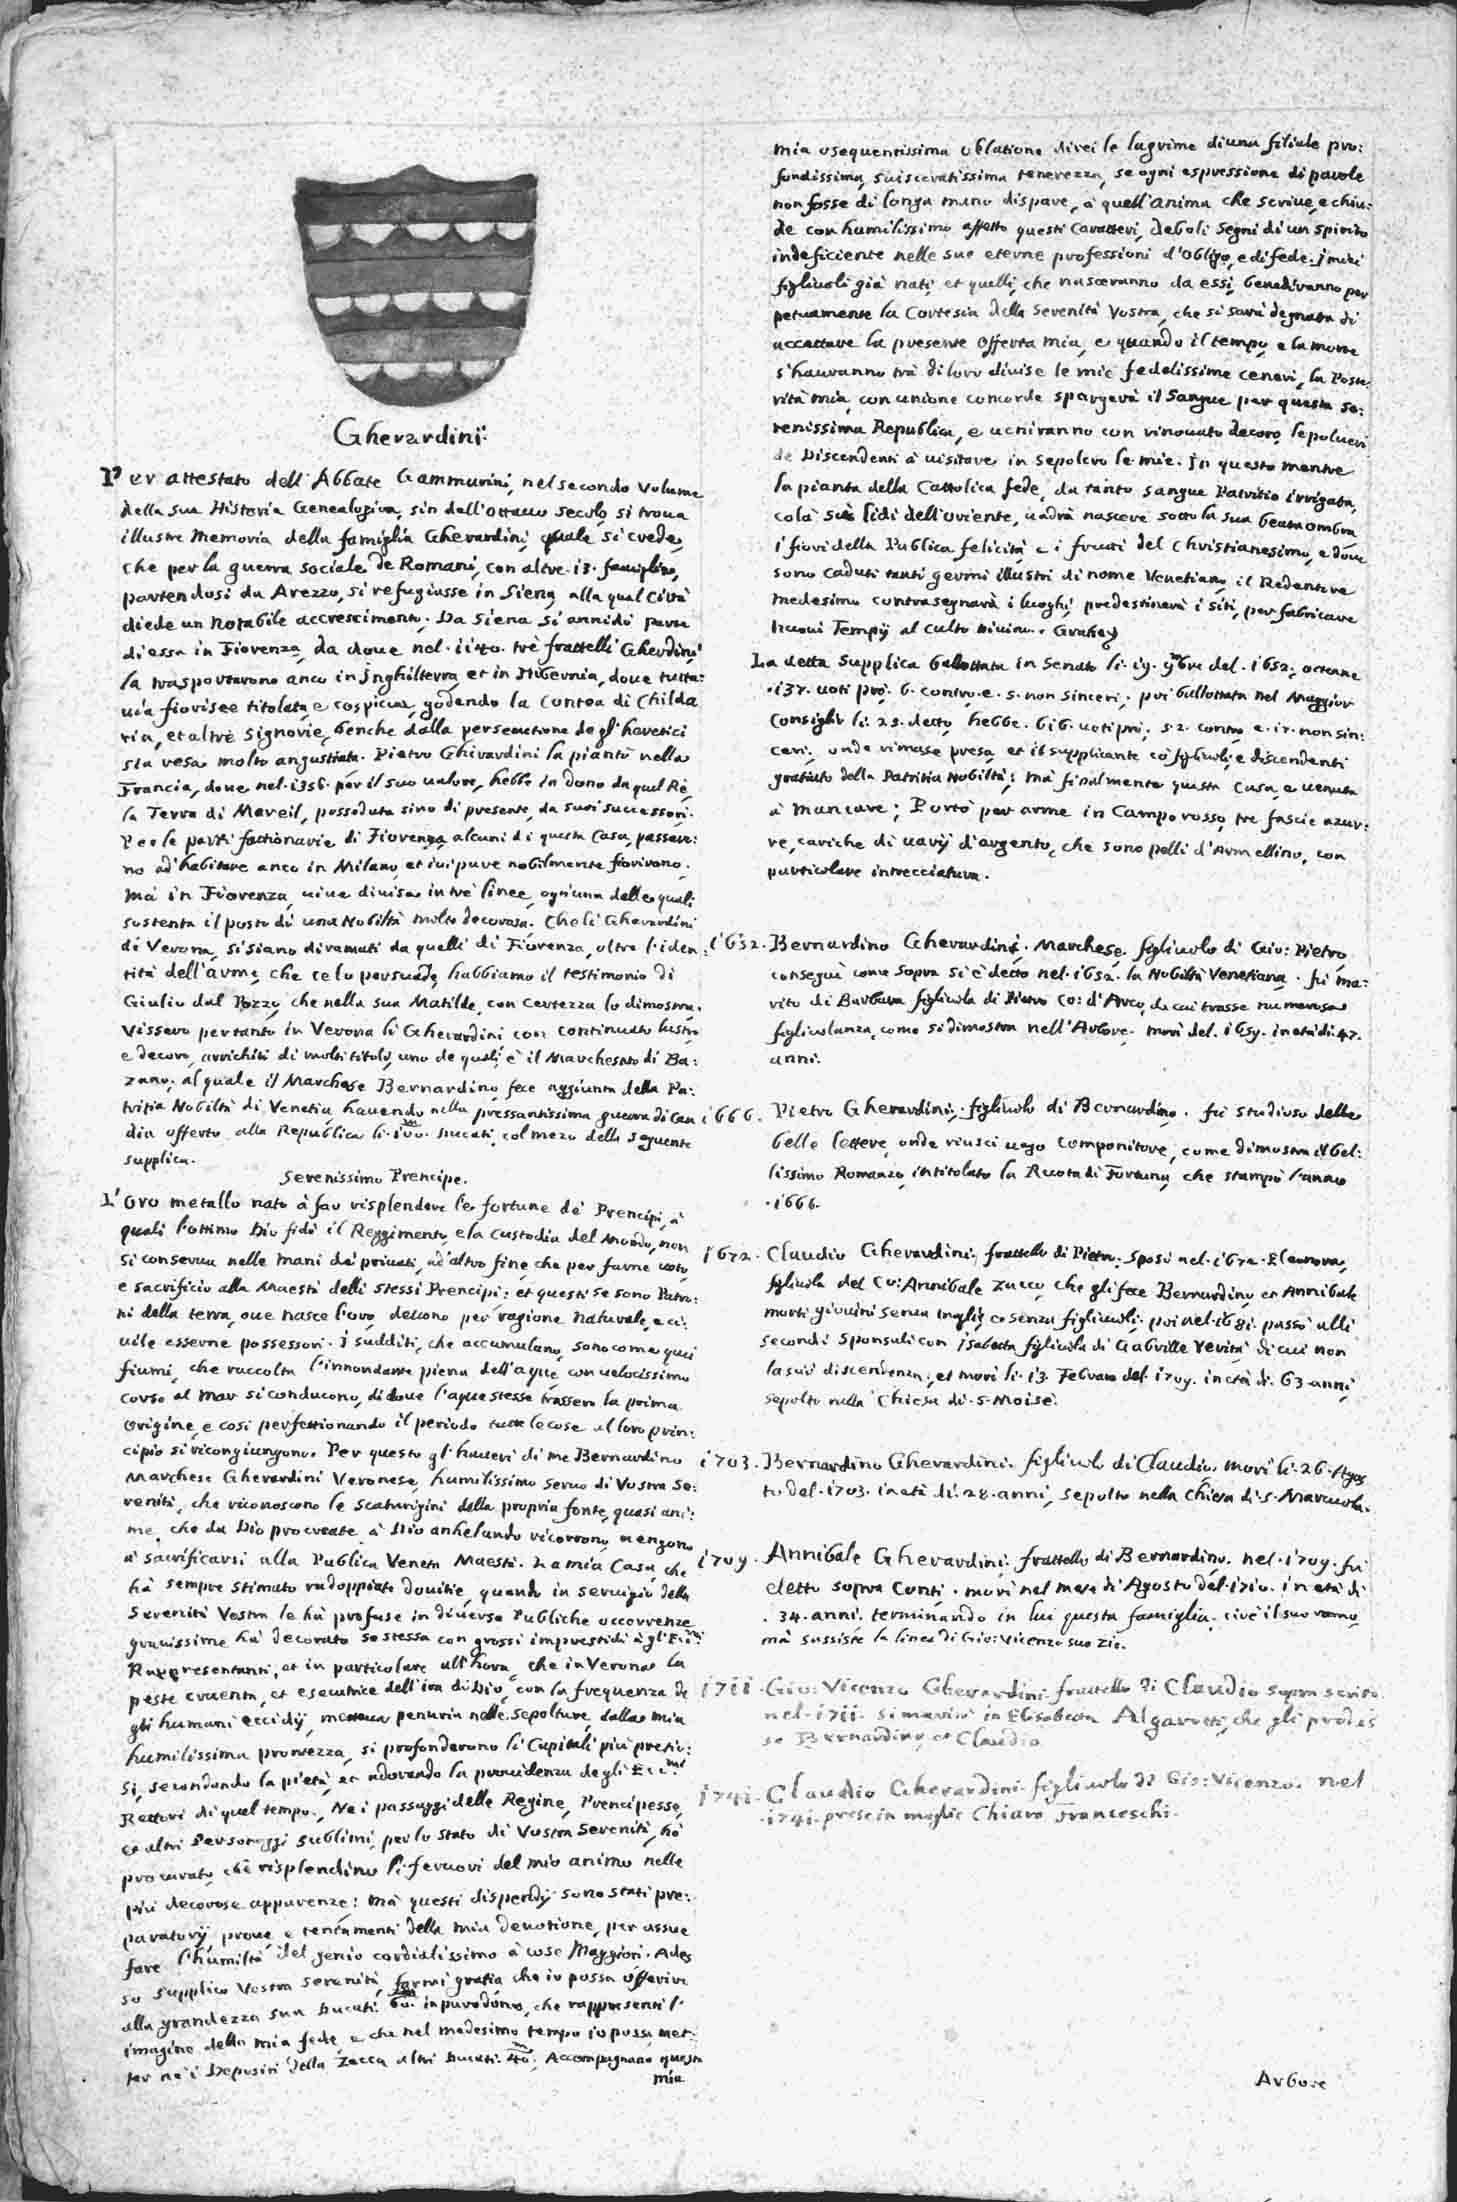 Gherardini.
Per attestato dell'Abbate Gammurini, nel secondo Volume
della sua Historia Genealogica, sin dall'ottavo secolo, si troua
illustre memoria della famiglia Gherardini, quale si crede,
che per la guerra sociale de Romani, con altre .13. famiglie,
partendosi da Arezzo, si refugiasse in Siena, alla qual Città
diede un notabile accrescimento. Da Siena si annidò parte
di essa in Fiorenza, da doue nel .1140. trè frattelli Gherdini
la trasportarono anco in Inghilterra, et in Hibernia, doue tutta:
uia fiorisce titolata, e cospicua, godendo la Contea di Childa
ria, et altre Signorie, benche dalla persecutione degl'haretici
sia resa molto angustiata. Pietro Ghirardini la piantò nella
Francia, doue nel .1356. per il suo ualore, hebbe in dono da quel Rè,
la Terra di Mareil, posseduta sino di presente, da suoi successori.
Per le parti factionarie di Fiorenza, alcuni di questa Casa, passaro:
no ad'habitare anco in Milano, et iui pure nobilmente fiorirono.
Mà in Fiorenza, uiue diuisa in trè linee, ogn'una delle quali
sostenta il posto di una Nobiltà molto decorosa. Che li Gherardini
di Verona, si siano diramati da quelli di Fiorenza, oltre l'iden:
tità dell'arme, che ce lo persuade, habbiamo il testimonio di
Giulio dal Pozzo, che nella sua Matilde, con certezza lo dimostra.
Vissero per tanto in Verona li Gherardini con continuato lustro,
e decoro, arrichiti di molti titoli, uno de quali, è il Marchesato di Ba:
zano, al quale il Marchese Bernardino, fece aggiunta della Pa:
tritia Nobiltà di Venetia, hauendo nella pressantissima guerra di Can
dia offerto alla Republica li .100. Ducati, col mezo della seguente
supplica.
Serenissimo Prencipe.
L'oro metallo nato à far risplendere le fortune de' Prencipi, à
quali l'ottimo Dio fidò il Reggimento, e la custodia del Mondo, non
si conserua nelle mani de' priuati, ad'altro fine, che per farne uoto,
e sacrificio alla Maestà delli stessi Prencipi: et questi se sono Patro:
ni della terra, oue nasce l'oro, deuono per ragione naturale, e ci:
uile esserne possessori. I sudditi, che accumulano, sono come quei
fiumi, che raccolta l'innondante piena dell'aque, con uelocissimo
corso al mar si conducono, di doue l'aque stesse trassero la prima
origine, e così perfettionando il periodo tutte le cose al loro prin:
cipio si ricongiungono. Per questo gl'haueri di me Bernardino
Marchese Gherardini Veronese, humilissimo seruo di Vostra Se:
renità, che riconoscono le scaturigini della propria fonte, quasi ani:
me, che da Dio procreate à Dio anhelando ricorrono, uengono
à sacrificarsi alla Publica Veneta Maestà. La mia Casa, che
hà sempre stimato radoppiate douitie, quando in seruigio della
Serenità Vostra le hà profuse in diuerse Publiche occorrenze
grauissime hà decorato se stessa con grossi imprestidi à gl'Ecc.mi
Rappresentanti, et in particolare all'hora, che in Verona la
peste cruenta, et esecutrice dell'ira di Dio, con la frequenza de
gli humani eccidij, metteua penuria nelle sepolture, dalla mia
humilissima prontezza, si profonderono li Capitali più pretio:
si, secondando la pietà, et adorando la prouidenza degli Ecc.mi
Rettori di quel tempo. Ne i passaggi delle Regine, Prencipesse,
et altri Personaggi sublimi, per lo stato di Vostra Serenità, hò
procurato, che risplendino li feruori del mio animo nelle
più decorose apparenze: mà questi dispendij sono stati pre:
paratorij, proue, e tentamenti della mia deuotione, per assue
fare l'humiltà del genio cordialissimo à cose Maggiori. Ades
so supplico Vostra Serenità, farmi gratia, che io possa offerire
alla grandezza sua Ducati .60.m in puro dono, che rappresenti l'
imagine della mia fede, e che nel medesimo tempo io possa met:
ter ne' i Depositi della Zecca altri Ducati .40.m Accompagnano questa
mia
mia osequentissima oblatione direi le lagrime di una filiale pro:
fondissima, suisceratissima tenerezza, se ogni espressione di parole
non fosse di longa mano dispare, à quell'anima che scriue, e chiu:
de con humilissimo affetto questi Caratteri, deboli segni di un spirito
indeficiente nelle sue eterne professioni d'obligo, e di fede. I miei
figliuoli già nati, et quelli, che nasceranno da essi, benediranno per
petuamente la Cortesia della Serenità Vostra, che si sarà degnata di
accettare la presente offerta mia, e quando il tempo, e la morte
s'hauranno trà di loro diuise le mie fedelissime ceneri, la Poste:
rità mia, con unione concorde spargerà il Sangue per questa Se:
renissima Republica, e ueniranno con rinouato decoro, le polueri
de Discendenti à uisitare in sepolcro le mie. In questo mentre
la pianta della Cattolica fede, da tanto sangue Patritio irrigata,
colà sù i lidi dell'oriente, uedrà nascere sotto la sua beata ombra
i fiori della Publica felicità, e i frutti del Christianesimo, e doue
sono caduti tanti germi illustri di nome Venetiano, il Redentore
medesimo contrasegnarà i luoghi, predestinerà i siti, per fabricare
nuoui Tempij al culto Diuino. Gratie
La detta supplica ballottata in Senato li .19. 9mbre del .1652. ottenne
.137. uoti prò .6. contro, e .5. non sinceri, poi ballottata nel Maggior
Consiglio li .25. detto, hebbe .616. uoti prò, .52. contro e .15. non sin:
ceri, onde rimase presa, et il supplicante co' figliuoli, e discendenti
gratiato della Patritia Nobiltà; mà finalmente questa Casa, e uenuta
à mancare; Portò per arme in Campo rosso, tre fascie azur:
re, cariche di uarij d'argento, che sono pelli d'Armellino, con
particolare intrecciatura.
1652. Bernardino Gherardini. Marchese, figliuolo di Gio: Pietro,
conseguì come sopra si è detto nel .1652. la Nobiltà Venetiana. fù ma:
rito di Barbara figliuola di Pietro Co: d'Arco, da cui trasse numerosa
figliuolanza, come si dimostra nell'Arbore. morì del .1659. in età di .47.
anni.
1666. Pietro Gherardini, figliuolo di Bernardino. fù studioso delle
belle lettere, onde riuscì uago Componitore, come dimostra il bel:
lissimo Romanzo, intitolato la Ruota di Fortuna, che stampò l'anno
.1666.
1672. Claudio Gherardini, frattello di Pietro. Sposò nel .1672. Eleonora,
figliuola del Co: Annibale Zucco, che gli fece Bernardino, et Annibale
morti giouini senza moglie, e senza figliuoli. poi nel .1681. passò alli
secondi sponsali con Isabetta figliuola di Gabrille Verità di cui non
lasciò discendenza, et morì li .13. Febraro del .1709. in età di .63. anni,
sepolto nella Chiesa di .S. Moisè.
1703. Bernardino Gherardini. figliuolo di Claudio, morì li .26. Agos
to del .1703. in età di .28. anni, sepolto nella Chiesa di .S. Marcuola.
1709. Annibale Gherardini. frattello di Bernardino. nel .1709. fù
eletto sopra Conti. morì nel mese di Agosto del .1710. in età di
.34. anni. terminando in lui questa famiglia. cioè il suo ramo,
mà sussiste la linea di Gio: Vicenzo suo zio.
1711. Gio: Vicenzo Gherardini frattello di Claudio sopra scrito.
nel .1711. si maritò in Elisabetta Algarotti, che gli produs
se Bernardino, et Claudio
1741. Claudio Gherardini figliuolo di Gio: Vicenzo. nel
.1741. prese in moglie Chiara Franceschi.
Arbore